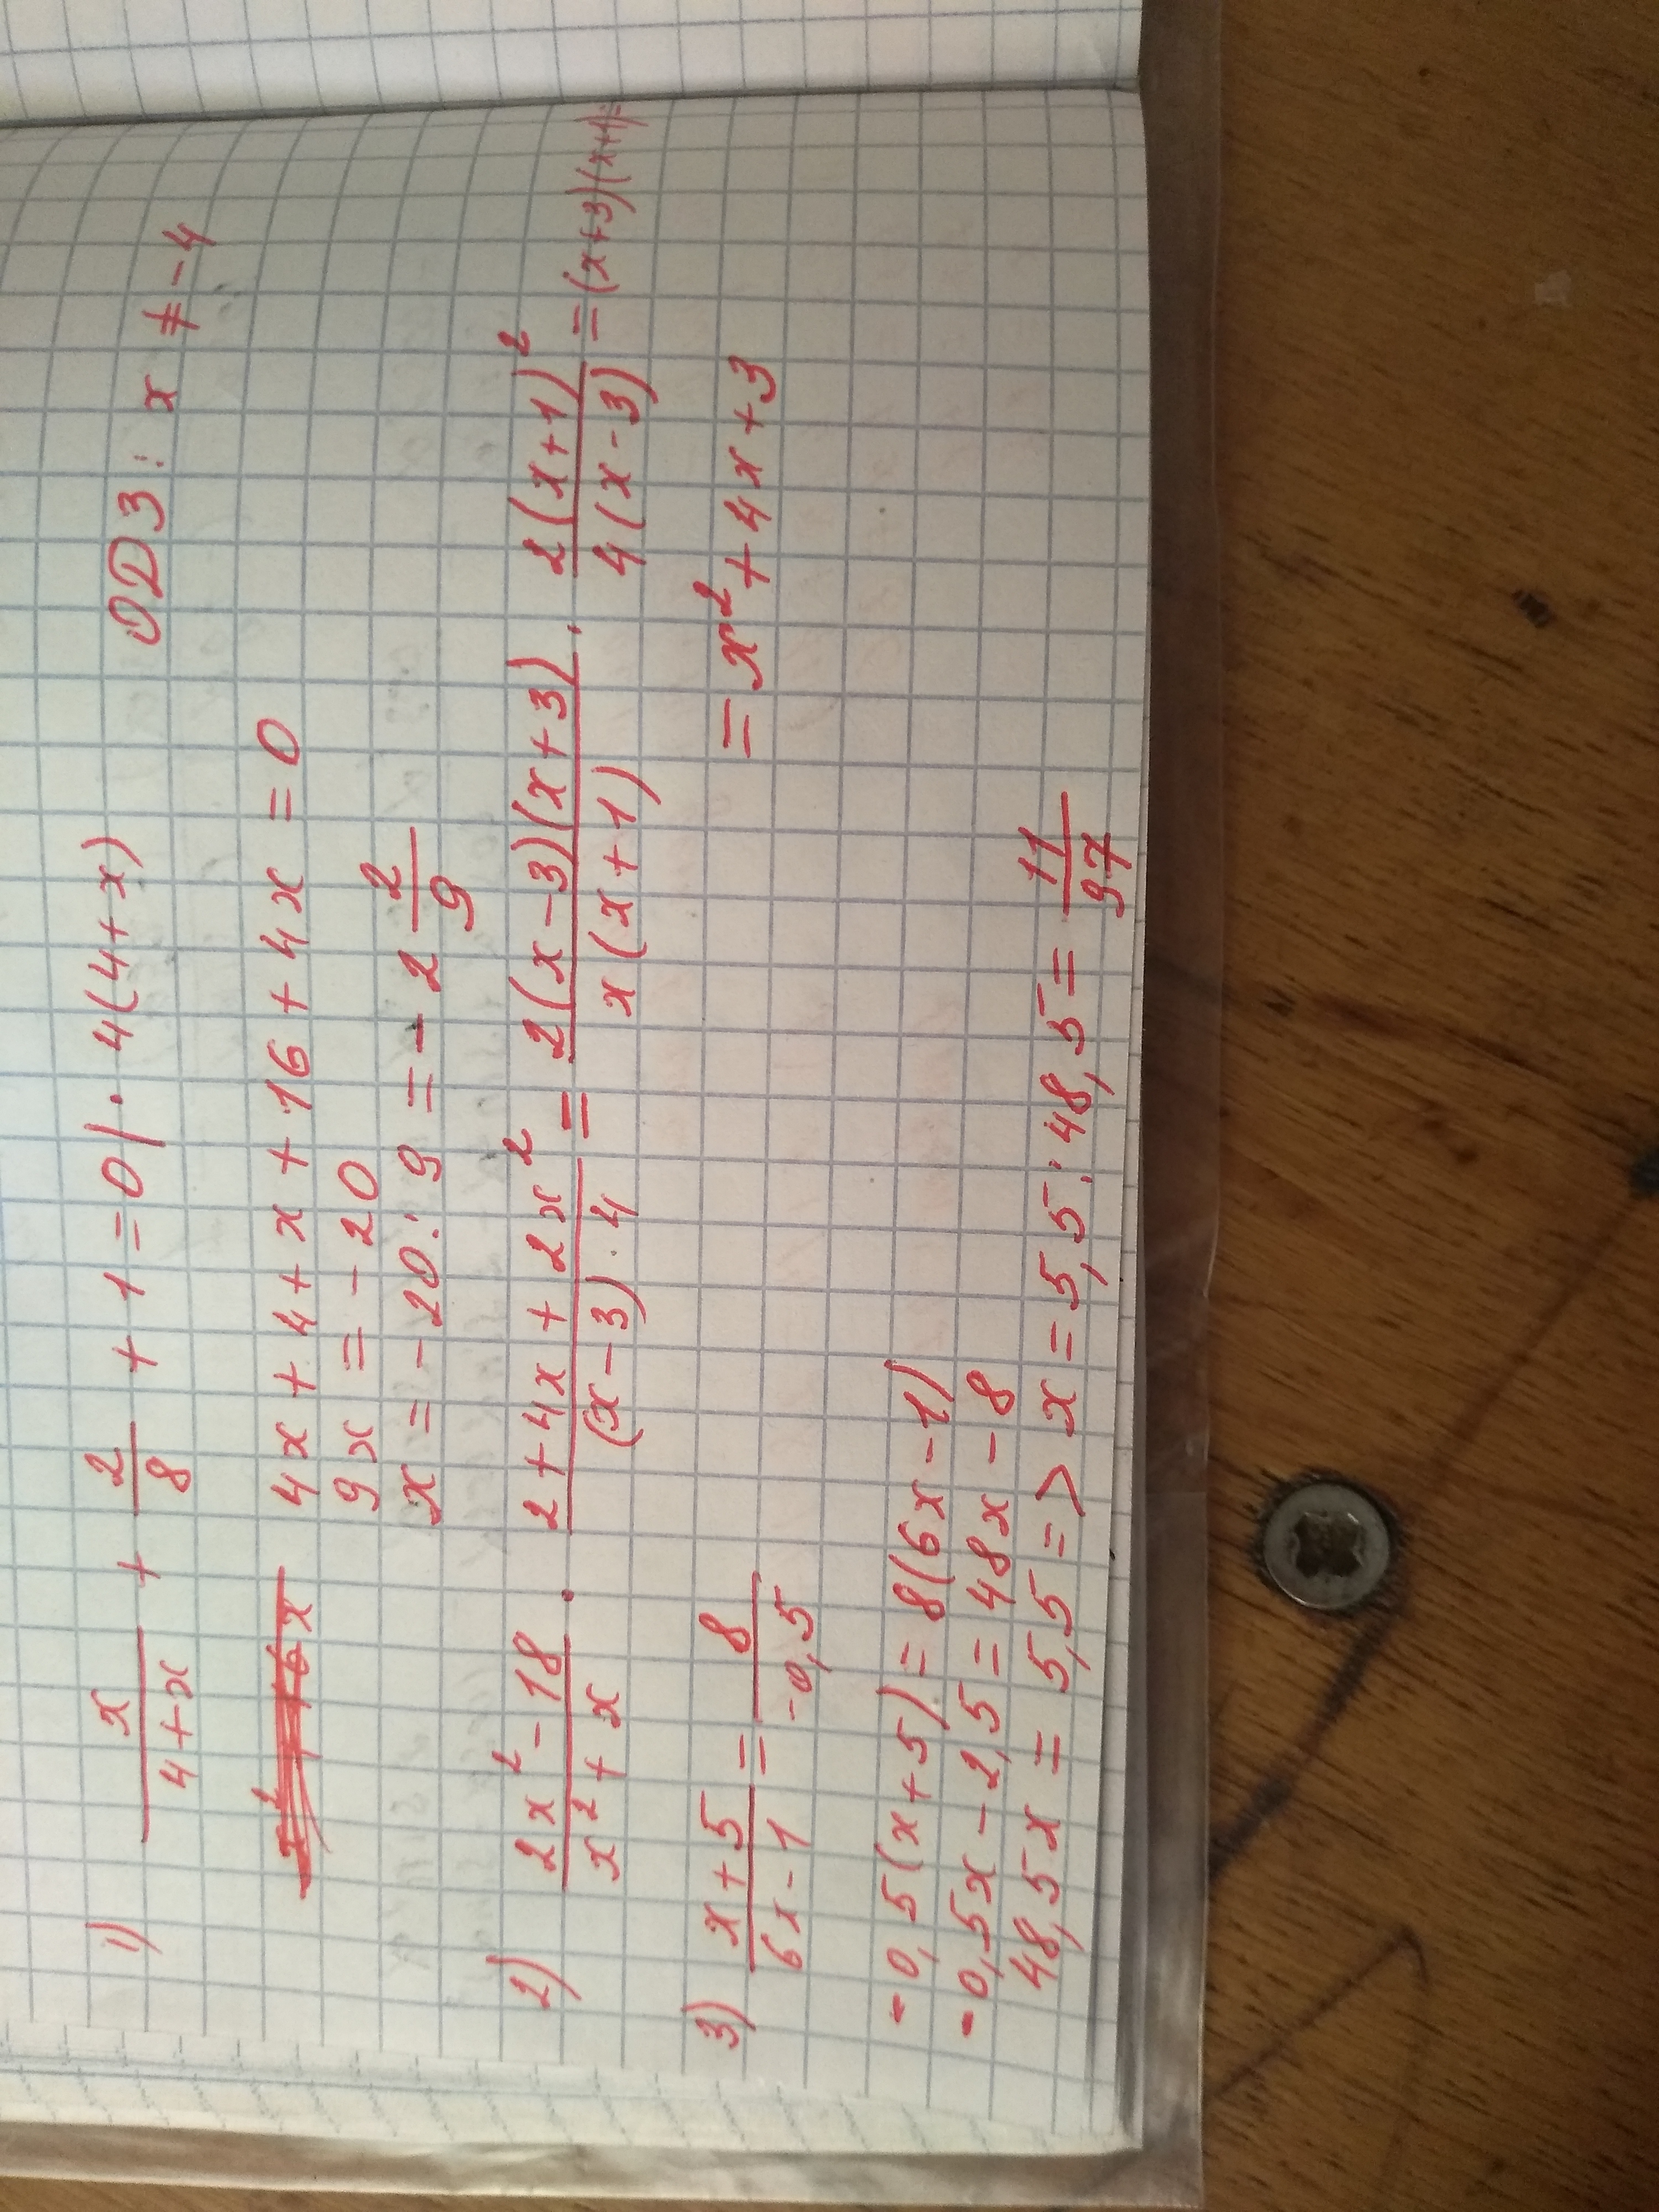 1) x/(4+x) + 2/8 + 1 = 0 | · 4(4+x) ОДЗ: x ≠ -4
4x + 4 + x + 16 + 4x = 0
9x = -20
x = -20 : 9 = -2 2/9
2) (2x² - 18)/(x² + x) · (2 + 4x + 2x²)/((x-3) · 4) = 2(x-3)(x+3)/x(x+1) · 2(x+1)²/4(x-3) = (x+3)(x+1) =
= x² + 4x + 3
3) (x+5)/(6x-1) = 8/-0,5
-0,5(x+5) = 8(6x-1)
-0,5x - 2,5 = 48x - 8
48,5x = 5,5 => x = 5,5 : 48,5 = 11/97